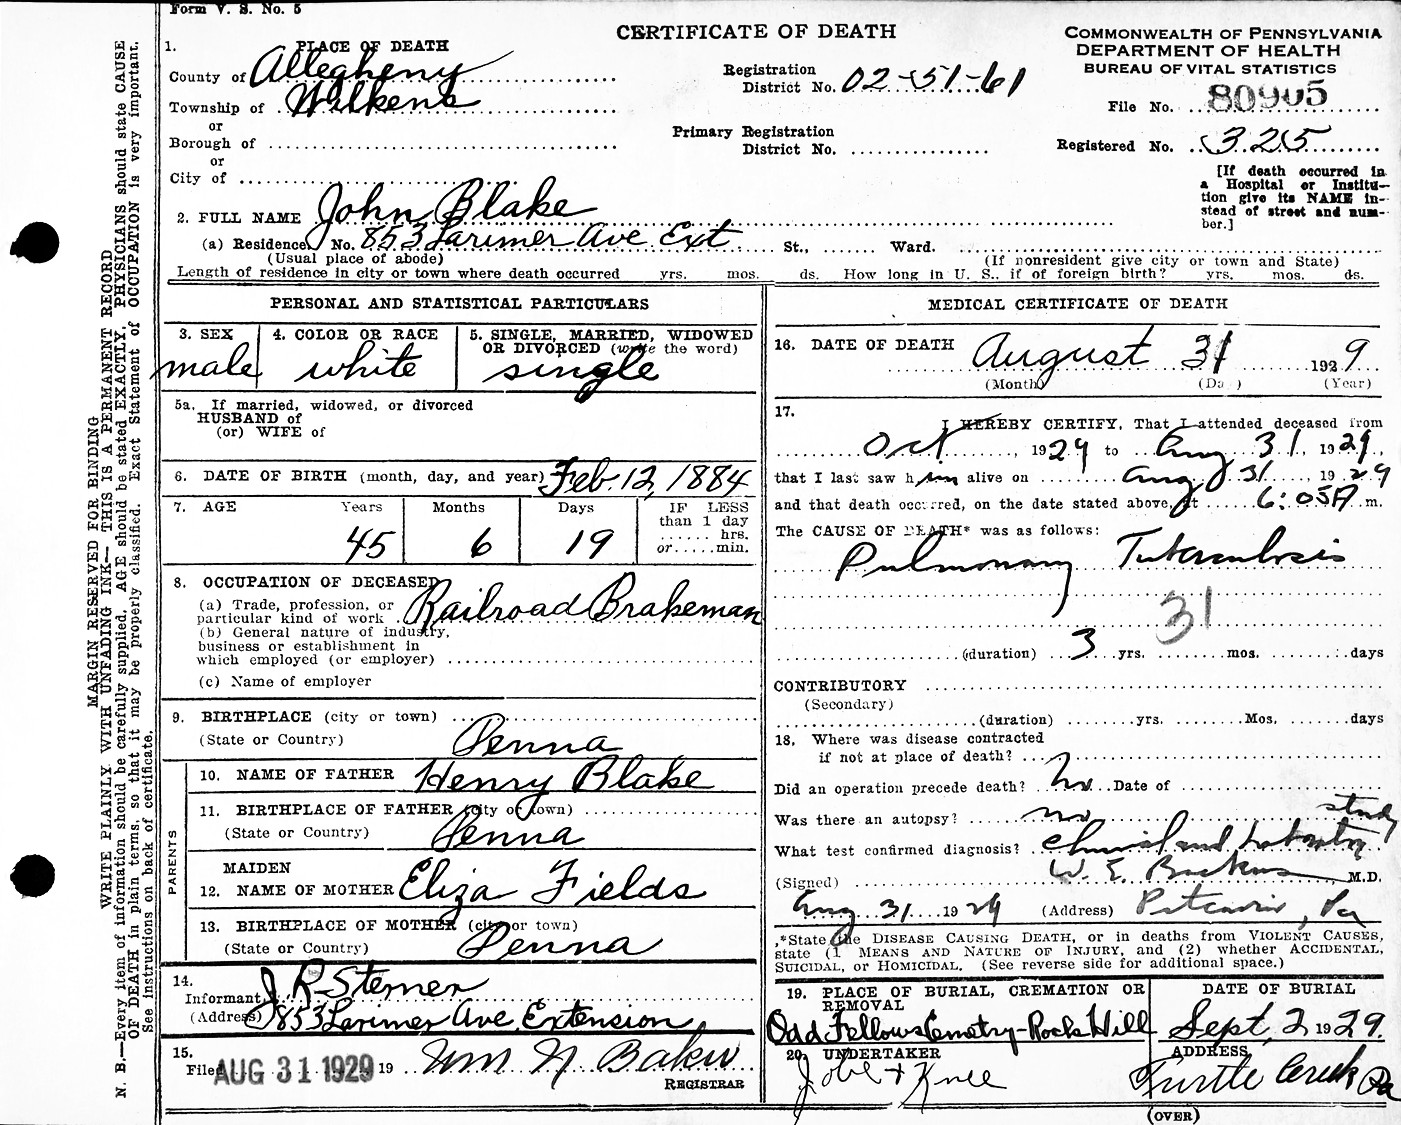 Form V. S. No. 5
CERTIFICATE OF DEATH
COMMONWEALTH OF PENNSYLVANIA
DEPARTMENT OF HEALTH
BUREAU OF VITAL STATISTICS
1. PLACE OF DEATH
County of Allegheny
Township of Wilkens
or
Borough of
or
City of
Registration District No. 02-51-61
Primary Registration District No.
File No. 80905
Registered No. 325
[If death occurred in
a Hospital or Institu-
tion give its NAME in-
stead of street and num-
ber.]
2. FULL NAME John Blake
(a) Residence No. 853 Larimer Ave Ext St., Ward.
(Usual place of abode) (If nonresident give city or town and State)
Length of residence in city or town where death occurred yrs. mos. ds. How long in U. S., if of foreign birth? yrs. mos. ds.
PERSONAL AND STATISTICAL PARTICULARS
3. SEX male
4. COLOR OR RACE white
5. SINGLE, MARRIED, WIDOWED
OR DIVORCED (write the word)
single
5a. If married, widowed, or divorced
HUSBAND of
(or) WIFE of
6. DATE OF BIRTH (month, day, and year) Feb. 12, 1884
7. AGE Years Months Days IF LESS
than 1 day
hrs.
or min.
45 6 19
8. OCCUPATION OF DECEASED
(a) Trade, profession, or
particular kind of work Railroad Brakeman
(b) General nature of industry,
business or establishment in
which employed (or employer)
(c) Name of employer
9. BIRTHPLACE (city or town)
(State or Country) Penna
PARENTS
10. NAME OF FATHER Henry Blake
11. BIRTHPLACE OF FATHER (city or town)
(State or Country) Penna
MAIDEN
12. NAME OF MOTHER Eliza Fields
13. BIRTHPLACE OF MOTHER (city or town)
(State or Country) Penna
14.
Informant J R Sterner
(Address) 853 Larimer Ave, Extension
15.
Filed AUG 31 1929 19 Wm N Baker
REGISTRAR
MEDICAL CERTIFICATE OF DEATH
16. DATE OF DEATH August 31 1929
(Month) (Da ) (Year)
17.
I HEREBY CERTIFY, That I attended deceased from
Oct, 1929 to Aug 31, 1929,
that I last saw him alive on Aug 31 1929
and that death occurred, on the date stated above, at 6:05A m.
The CAUSE OF DEATH* was as follows:
Pulmonary Tuberculosis
31
(duration) 3 yrs. mos. days
CONTRIBUTORY
(Secondary)
(duration) yrs. Mos. days
18. Where was disease contracted
if not at place of death?
Did an operation precede death? No Date of
Was there an autopsy? no
What test confirmed diagnosis? Clinical and Laboratory study
(Signed) W. E. M.D.
Aug 31 1929 (Address) Pitcairn, Pa
*State the DISEASE CAUSING DEATH, or in deaths from VIOLENT CAUSES,
state (1 MEANS AND NATURE OF INJURY, and (2) whether ACCIDENTAL,
SUICIDAL, or HOMICIDAL. (See reverse side for additional space.)
19. PLACE OF BURIAL, CREMATION OR
REMOVAL
Odd Fellows Cemetry-Rock Hill
DATE OF BURIAL
Sept, 2, 1929.
20. UNDERTAKER
ADDRESS
Turtle Creek Pa
(OVER)
MARGIN RESERVED FOR BINDING
WRITE PLAINLY, WITH UNFADING INK—THIS IS A PERMANENT RECORD
N. B.—Every item of information should be carefully supplied. AGE should be stated EXACTLY. PHYSICIANS should state CAUSE
OF DEATH in plain terms, so that it may be properly classified. Exact Statement of OCCUPATION is very important.
See instructions on back of certificate.